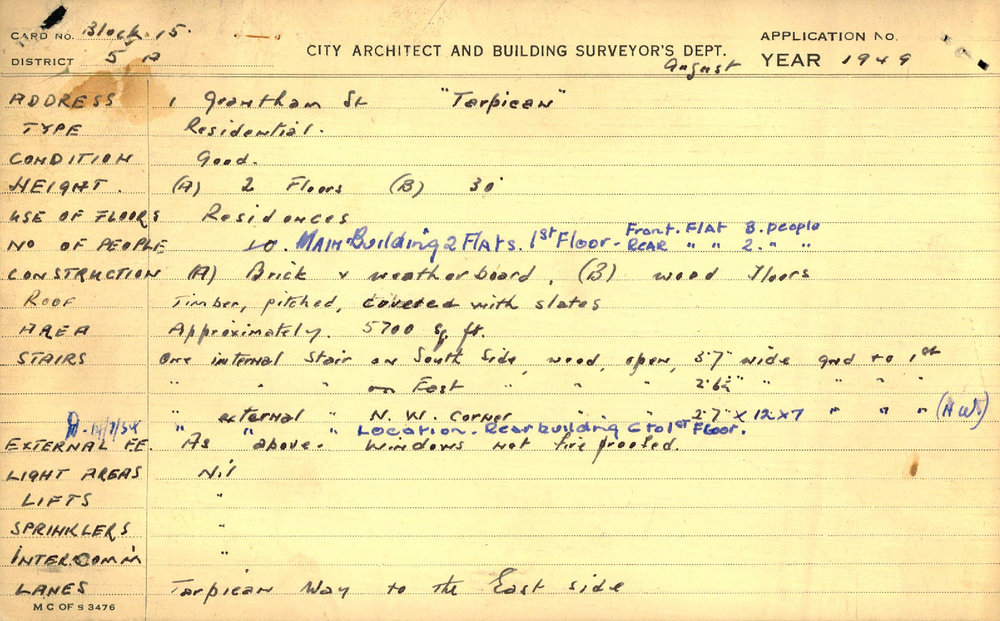 CARD NO. Block 15.
DISTRICT 5 A
CITY ARCHITECT AND BUILDING SURVEYOR'S DEPT.
August
APPLICATION NO.
YEAR 1949
ADDRESS 1 Grantham St "Tarpican"
TYPE Residential.
CONDITION Good.
HEIGHT. (A) 2 Floors (B) 30'
USE OF FLOORS Residences
NO OF PEOPLE 10. MAIN Building 2 FLATS. 1st Floor - Front. FLAT 3. people
REAR " " 2. " "
CONSTRUCTION (A) Brick & weatherboard, (B) wood Floors
ROOF Timber, pitched, covered with slates
AREA Approximately. 5700 sq. ft.
STAIRS One internal Stair on South Side, wood, open, 3'7" wide gnd to 1st
" " " on East " " " 2'6½" " " " "
" external " N. W. Corner " " 2'7" X 12 X 7 " " " (H W's)
14/7/54 " " Location - Rear building G to 1st Floor.
EXTERNAL F.E. As above. Windows not fire proofed.
LIGHT AREAS Nil
LIFTS "
SPRINKLERS "
INTERCOMM "
LANES Tarpican Way to the East side
M C OF S 3476